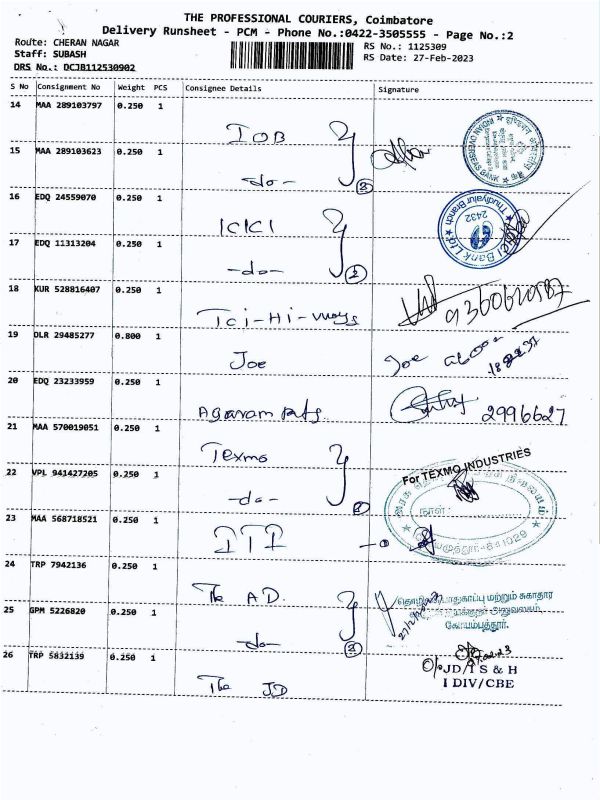 THE PROFESSIONAL COURIERS, Coimbatore
Delivery Runsheet - PCM - Phone No.:0422-3505555 - Page No.:2
Route: CHERAN NAGAR
Staff: SUBASH
DRS No.: DCJB112530902
RS No.: 1125309
RS Date: 27-Feb-2023
S No Consignment No Weight PCS Consignee Details Signature
14 MAA 289103797 0.250 1 IOB
15 MAA 289103623 0.250 1 -do- 2
INDIAN OVERSEAS BANK
16 EDQ 24559070 0.250 1 ICICI
17 EDQ 11313204 0.250 1 -do- 2
ICICI Bank Ltd.
Thudiyalur Branch
2432
18 KUR 528816407 0.250 1 Tci-Hi-ways
19 DLR 29485277 0.800 1 Joe Joe
20 EDQ 23233959 0.250 1 Agaram 2996627
21 MAA 570019051 0.250 1 Texmo
For TEXMO INDUSTRIES
22 VPL 941427205 0.250 1 -do-
நாள் :
23 MAA 568718521 0.250 1 ITI
24 TRP 7942136 0.250 1 The A.D.
தொழிலக பாதுகாப்பு மற்றும் சுகாதார
அலுவலகம்
கோயம்புத்தூர்.
25 GPM 5226820 0.250 1 -do- 2
26 TRP 5832139 0.250 1 The JD
O/o JD/I S & H
I DIV/CBE